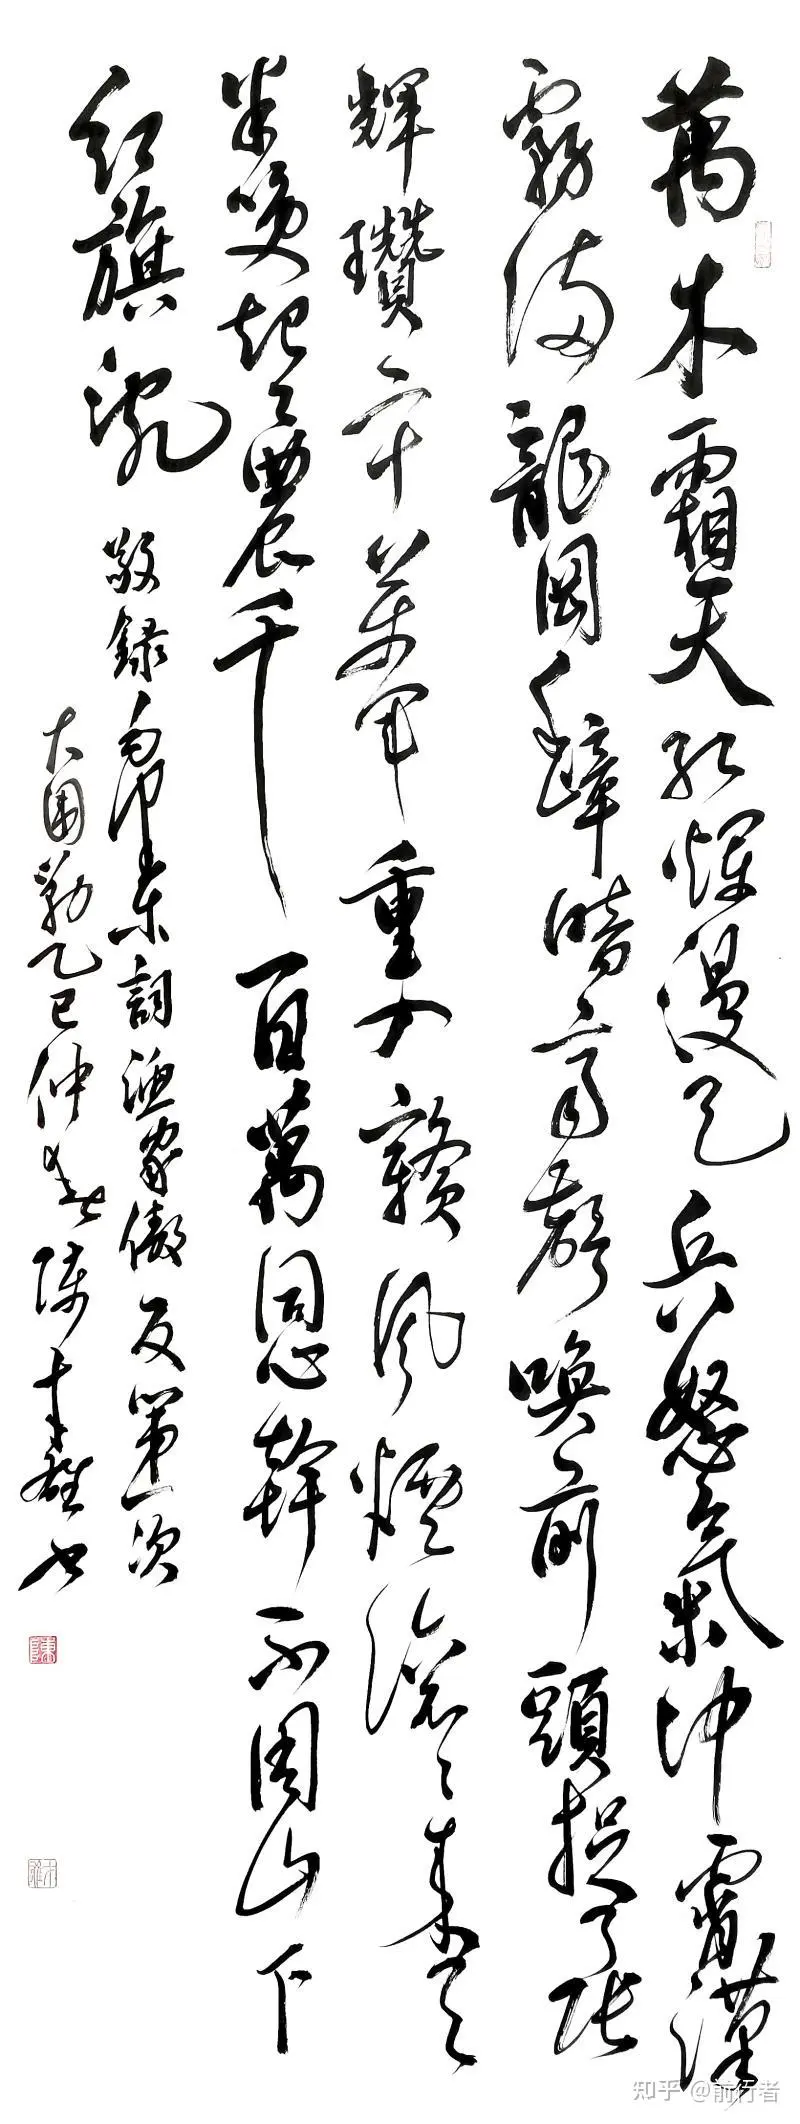 萬木霜天红爛漫天兵怒氣冲霄漢
霧满龍岡千嶂暗齊聲唤前頭捉了张
輝瓚二十萬軍重入赣風煙滚〻来天
半唤起工農千百萬同心幹不周山下
红旗亂 敬録毛澤東詞漁家傲反第一次
大圍勦乙巳仲春陈雄书
知乎 @前行者